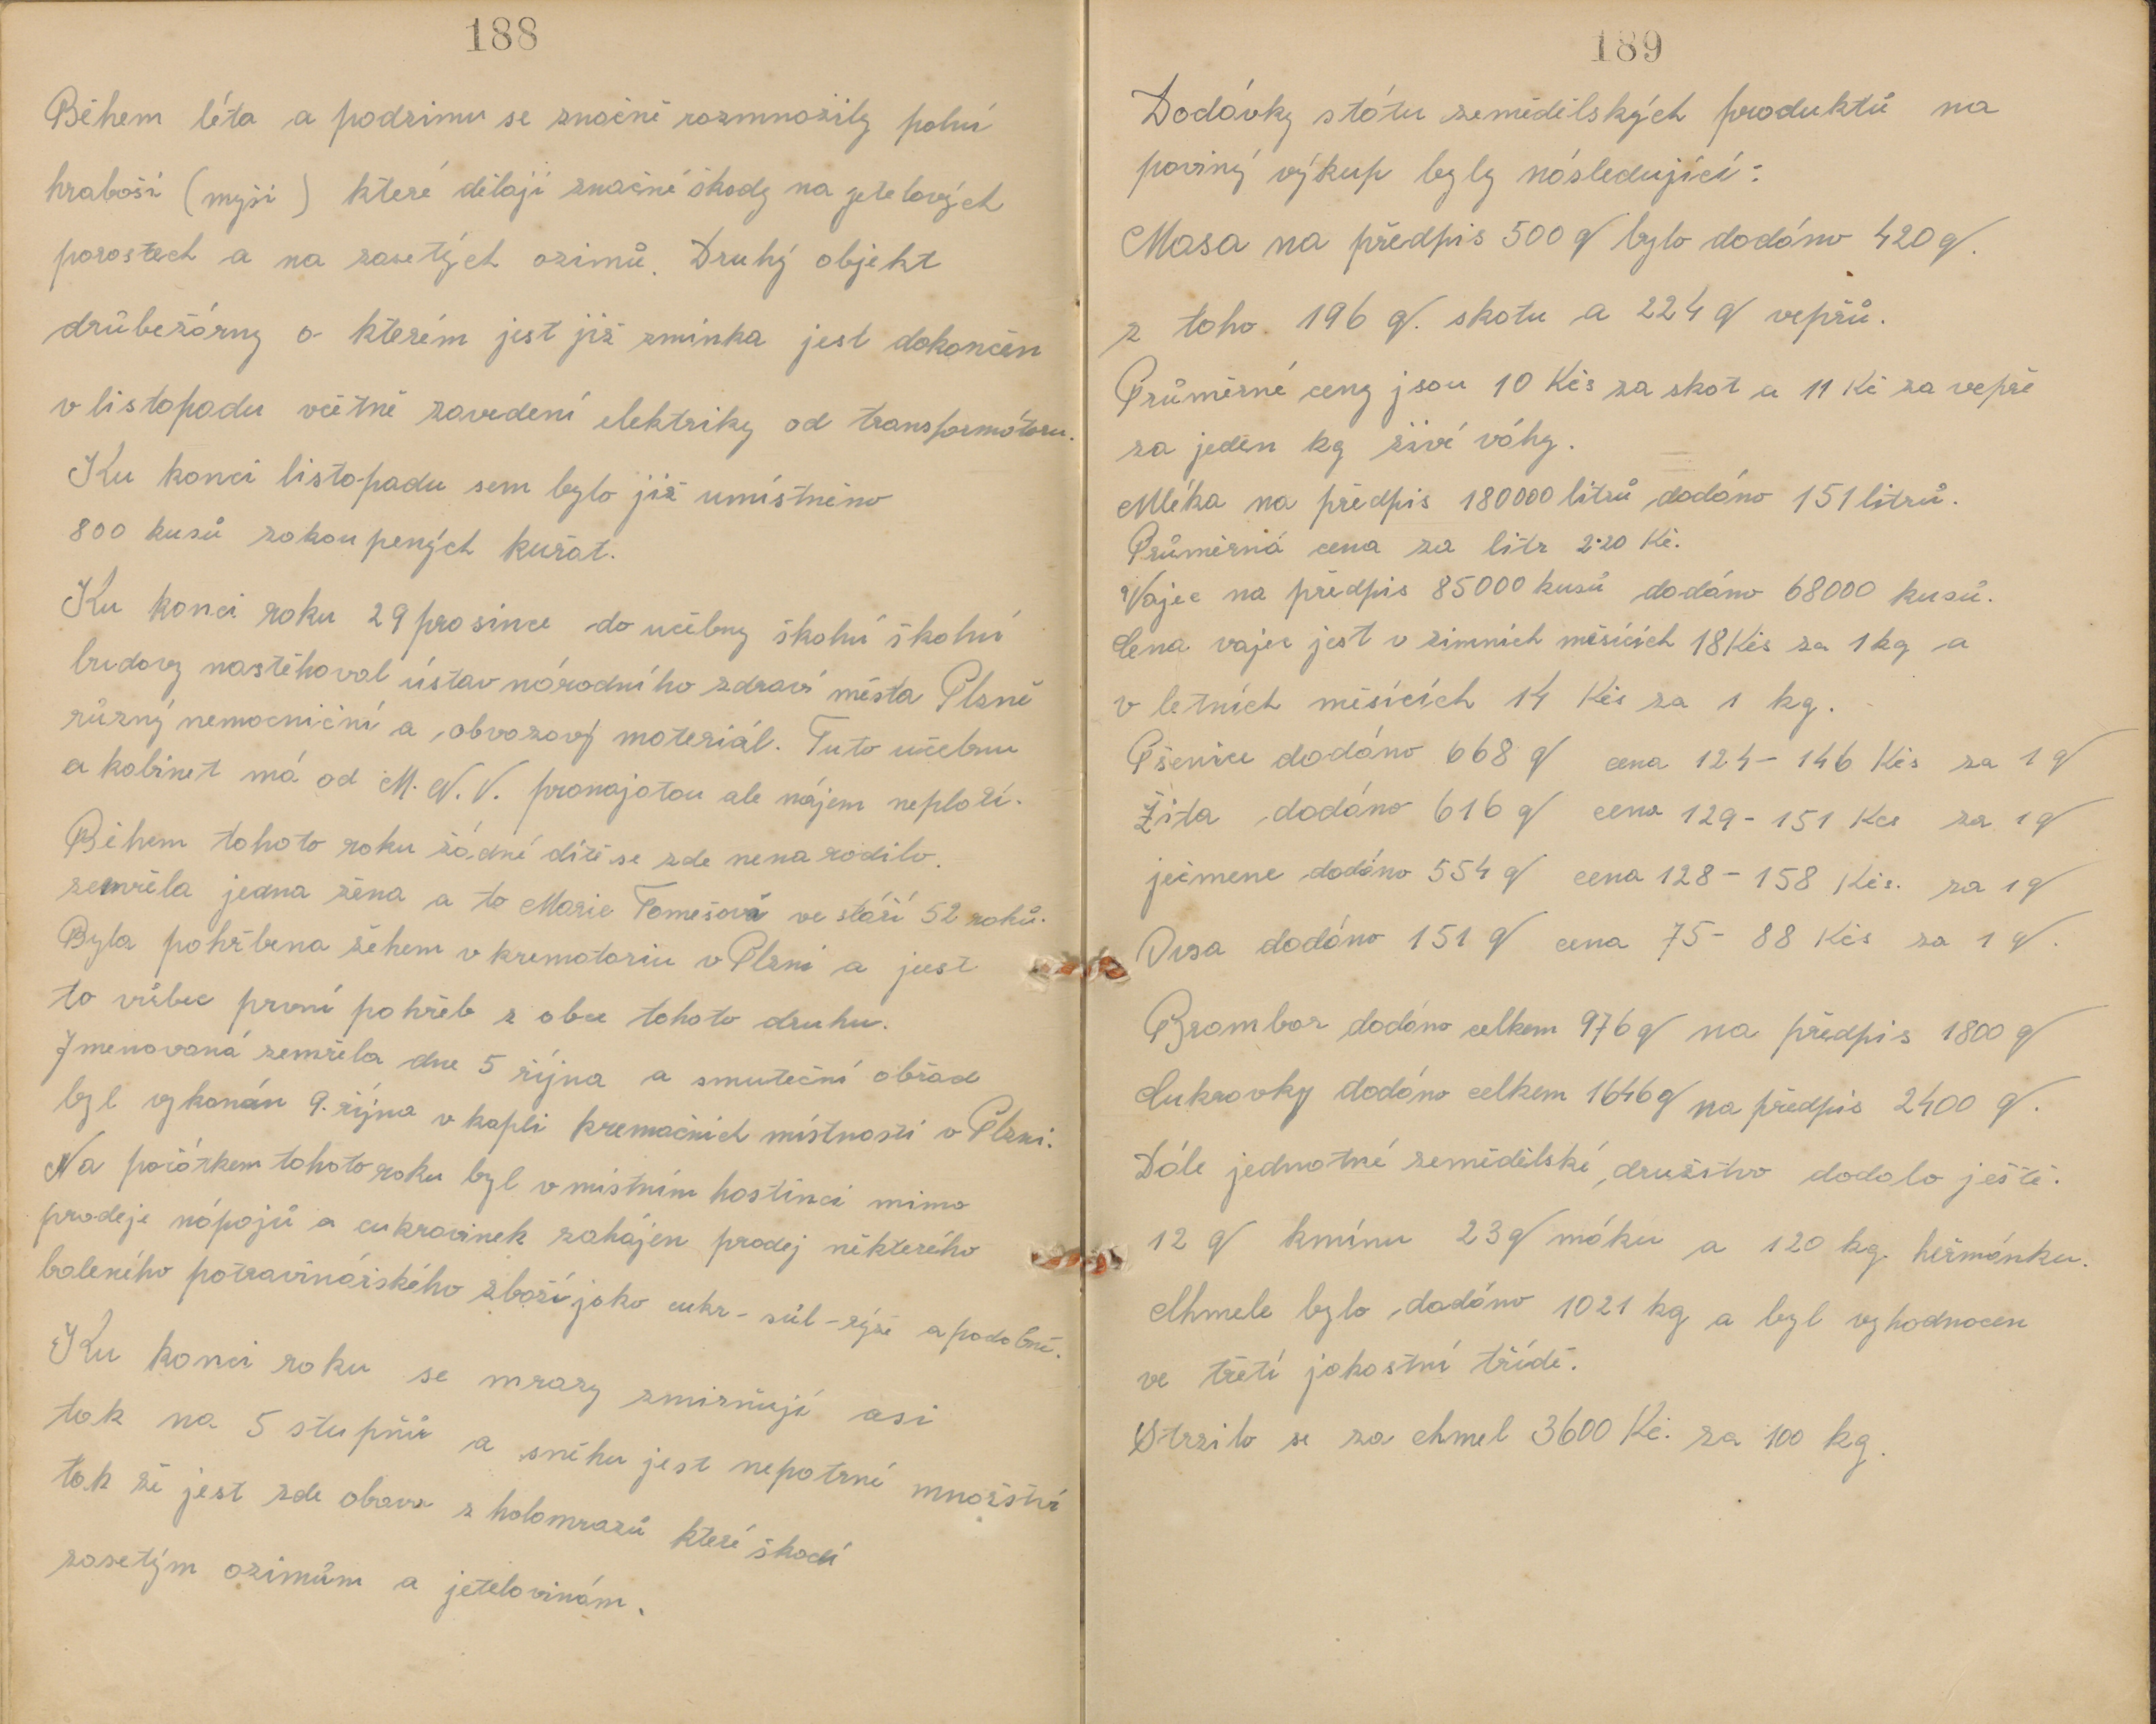 188
Během léta a podzimu se značně rozmnožily polní
hraboši (myši) které dělají značné škody na jetelových
porostech a na zasetých ozimů. Druhý objekt
drůbežárny o kterém jest již zmínka jest dokončen
v listopadu včetně zavedení elektriky od transformátoru.
Ku konci listopadu sem bylo již umístněno
800 kusů zakoupených kuřat.
Ku konci roku 29 prosince do učebny školní školní
budovy nastěhoval ústav národního zdraví města Plzně
různý nemocniční a obvazový materiál. Tuto učebnu
a kabinet má od M.N.V. pronajatou ale nájem neplatí.
Během tohoto roku žádné dítě se zde nenarodilo.
zemřela jedna žena a to Marie Tomešová ve stáří 52 roků.
Byla pohřbena žehem v krematoriu v Plzni a jest
to vůbec první pohřeb z obce tohoto druhu.
Jmenovaná zemřela dne 5 října a smuteční obřad
byl vykonán 9. října v kapli kremačních místností v Plzni.
Na počátkem tohoto roku byl v místním hostinci mimo
prodeje nápojů a cukrovinek zahájen prodej některého
baleného potravinářského zboží jako cukr - sůl - rýže a podobně.
Ku konci roku se mrazy zmirňují asi
tak na 5 stupňů a sněhu jest nepatrné množství
tak že jest zde obava z holomrazů které škodí
zasetým ozimům a jetelovinám.
189
Dodávky státu zemědělských produktů na
poviný výkup byly následující:
Masa na předpis 500 q bylo dodáno 420 q.
z toho 196 q. skotu a 224 q vepřů.
Průměrné ceny jsou 10 Kčs za skot a 11 Kč za vepře
za jeden kg živé váhy.
Mléka na předpis 180000 litrů dodáno 151 litrů.
Průměrná cena za litr 2·20 Kč.
Vajec na předpis 85000 kusů dodáno 68000 kusů.
Cena vajec jest v zimních měsících 18 Kčs za 1 kg a
v letních měsících 14 Kčs za 1 kg.
Pšenice dodáno 668 q cena 124 - 146 Kčs za 1 q
Žita dodáno 616 q cena 129 - 151 Kčs za 1 q
ječmene dodáno 554 q cena 128 - 158 Kčs. za 1 q
Ovsa dodáno 151 q cena 75 - 88 Kčs za 1 q.
Brambor dodáno celkem 976 q na předpis 1800 q
Cukrovky dodáno celkem 1646 q na předpis 2400 q.
Dále jednotné zemědělské družstvo dodalo ještě:
12 q kmínu 23 q máku a 120 kg. heřmánku.
Chmele bylo dodáno 1021 kg a byl vyhodnocen
ve třetí jakostní třídě.
Stržilo se za chmel 3600 Kč. za 100 kg.